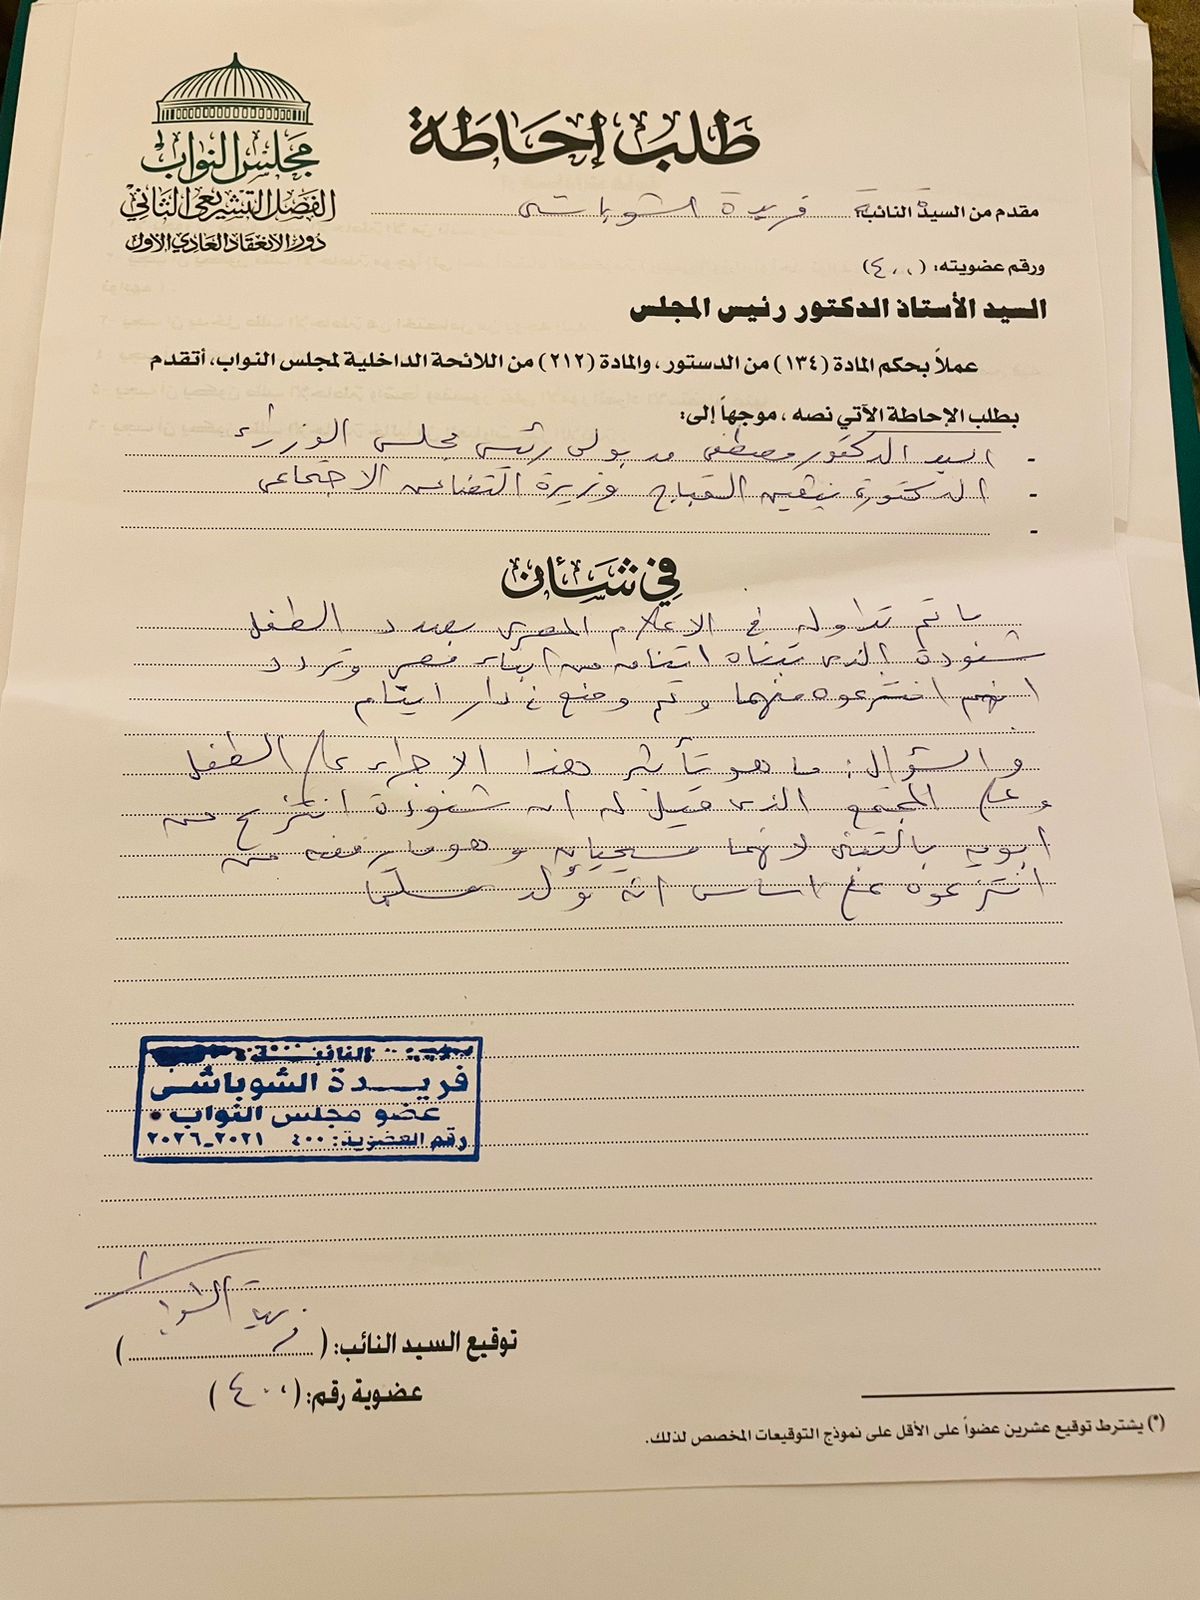 طلب إحاطة
مجلس النواب
الفصل التشريعى الثانى
دور الانعقاد العادى الأول
مقدم من السيدة النائبة فريدة الشوباشى
ورقم عضويته: (٤٠٠)
السيد الأستاذ الدكتور رئيس المجلس
عملاً بحكم المادة (١٣٤) من الدستور، والمادة (٢١٢) من اللائحة الداخلية لمجلس النواب، أتقدم
بطلب الإحاطة الآتي نصه، موجهاً إلى:
- السيد الدكتور مصطفى مدبولى رئيس مجلس الوزراء
- الدكتورة نيفين القباج وزيرة التضامن الاجتماعى
-
في شأن
ما تم تداوله فى الاعلام المصرى بصدد الطفل
شنودة الذى تبناه اثنان من ابناء مصر وتردد
انهم انتزعوه منهما وتم وضع فى دار ايتام
والسؤال: ما هو تأثير هذا الاجراء على الطفل
وعلى المجتمع الذى قيل له ان شنودة انتزع من
ابويه بالتبنى لانهما مسيحيان وهو ما رفضه من
انتزعوه على اساس انه ولد مسلما
النائبة
فريدة الشوباشى
عضو مجلس النواب
رقم العضوية: ٤٠٠ ٢٠٢١-٢٠٢٦
فريدة الشوباشى
توقيع السيد النائب: (..........)
عضوية رقم: (٤٠٠)
(*) يشترط توقيع عشرين عضواً على الأقل على نموذج التوقيعات المخصص لذلك.